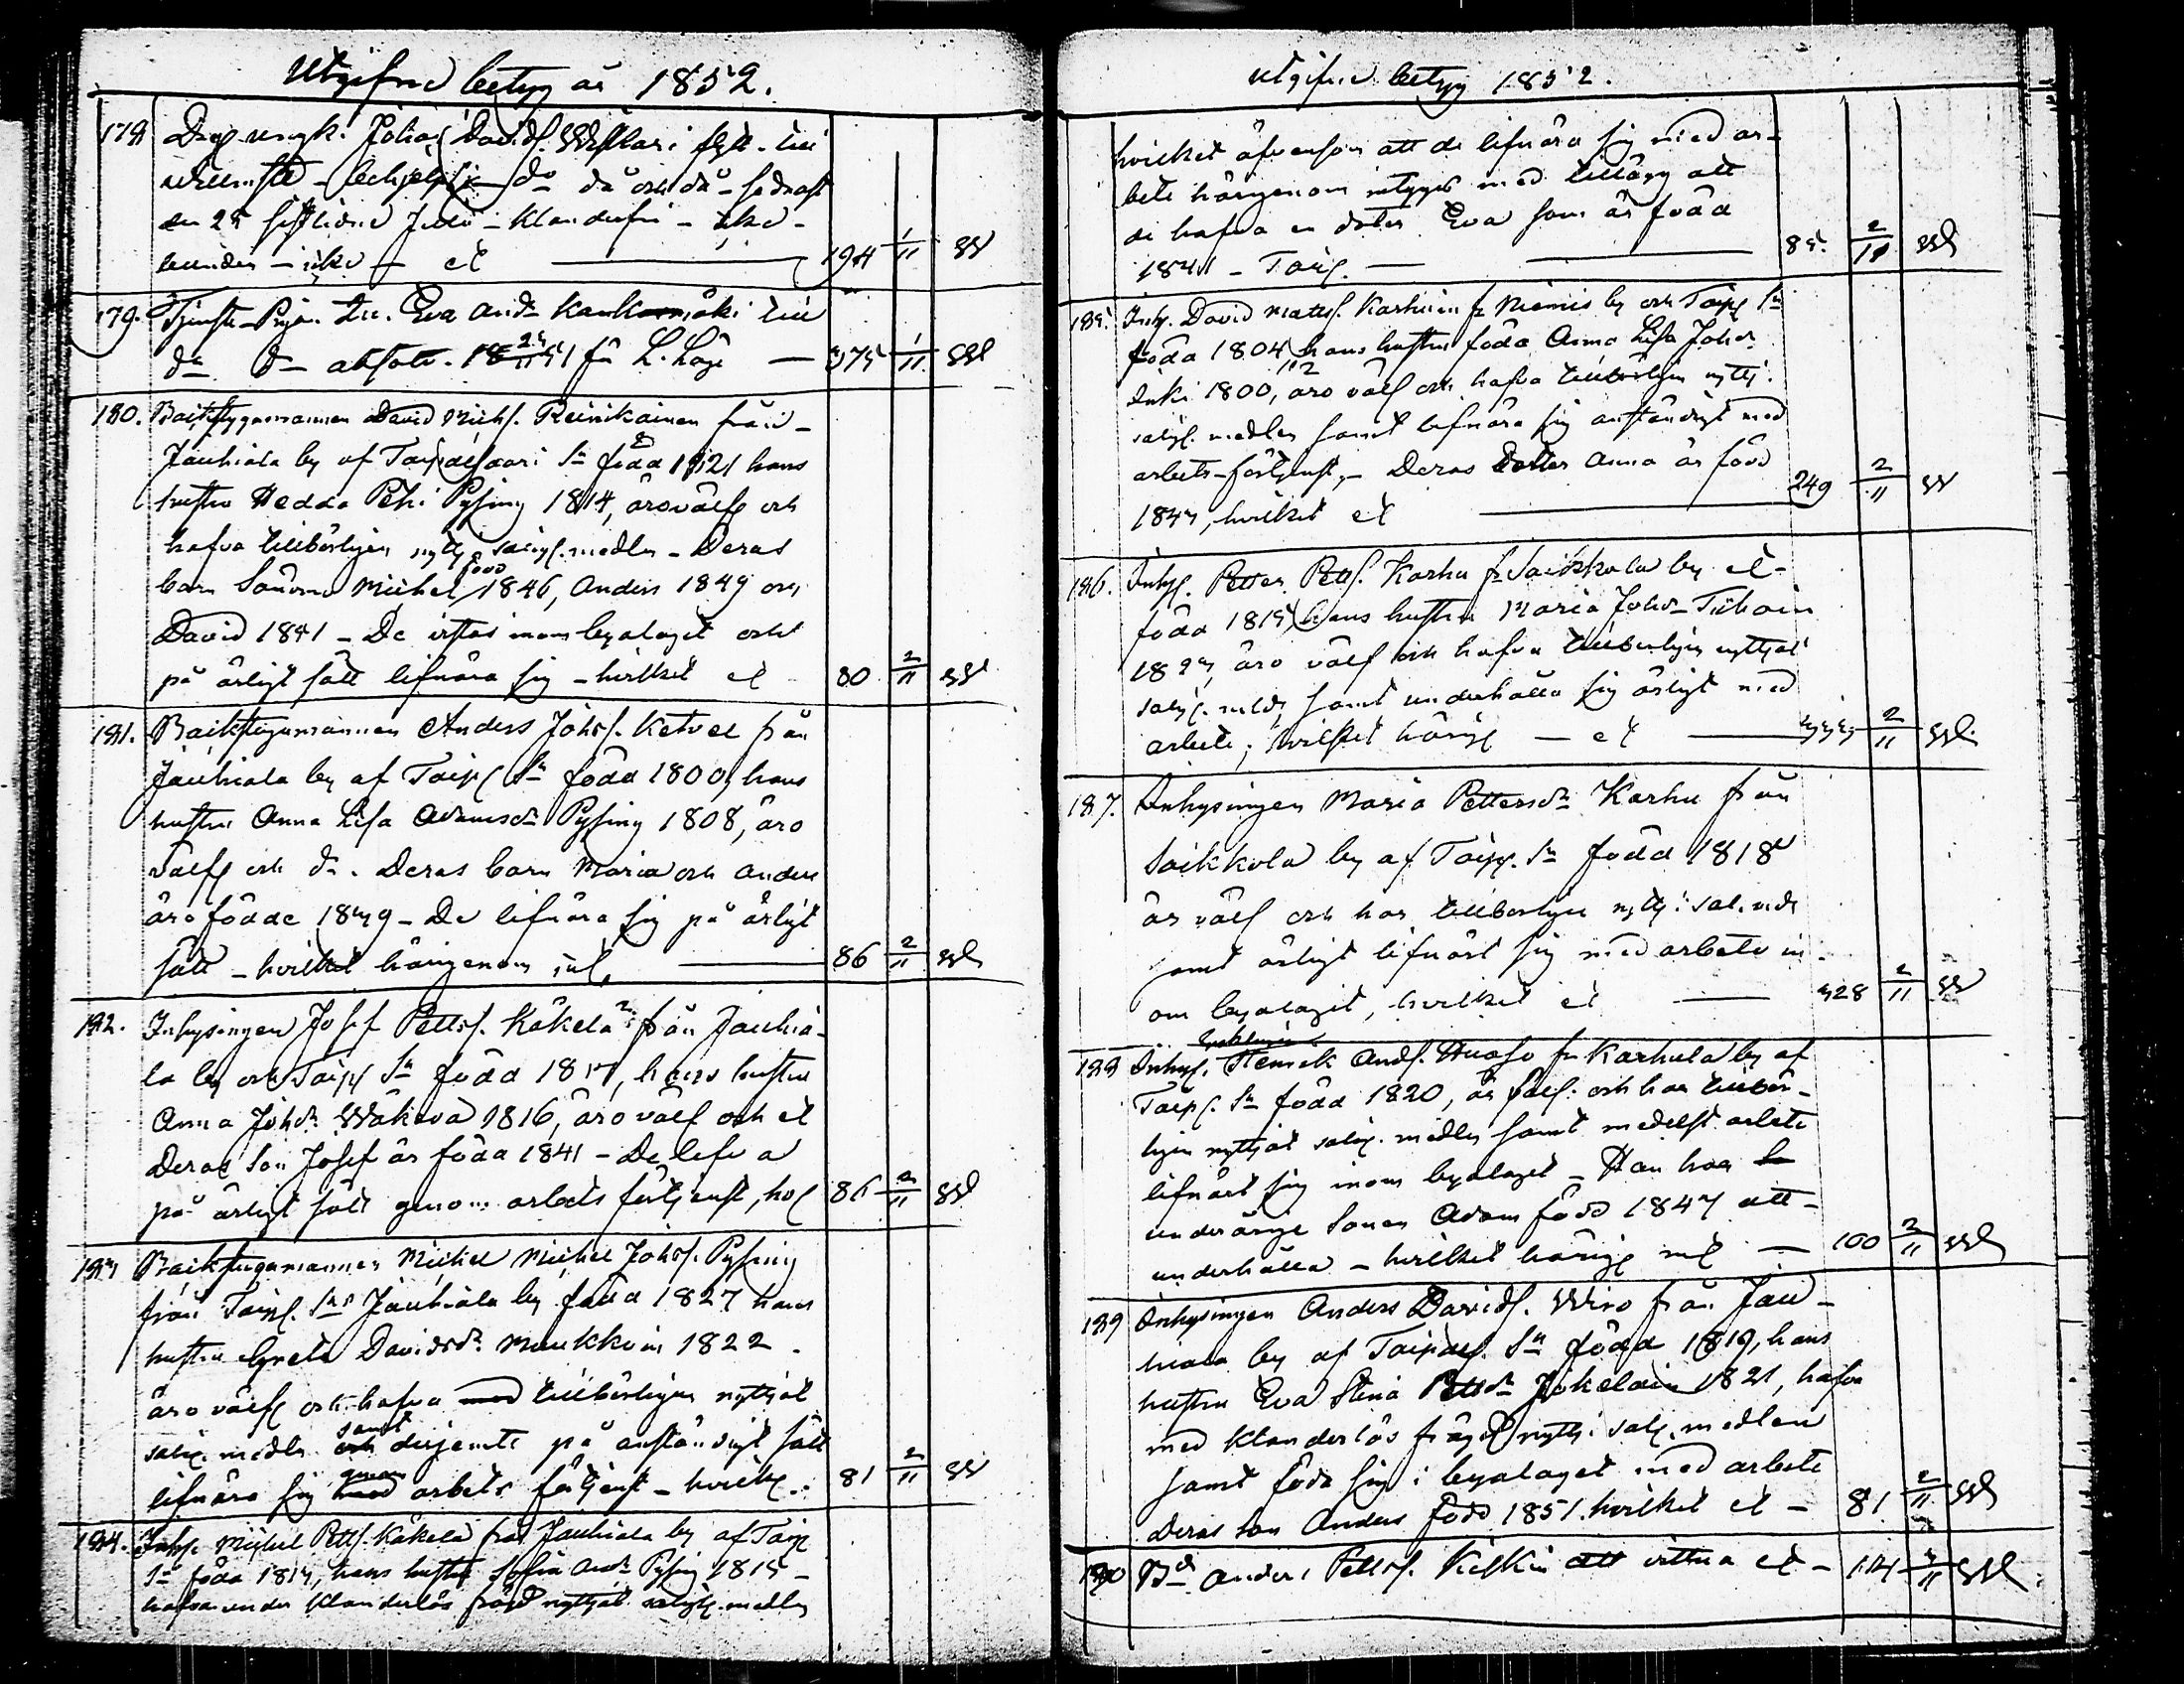 Utgifne betyg år 1852.
178 Johan Davids. flytt. till
då och då
den 25 sistlidne Julii - Klanderfri -
194 1/11
179. Eva And:dr till
absolv. 18 25/11 51 375 1/11
180. Backstugumannen David Michs. Reinikainen från
Jauhiala by af Taipalsaari S:n född 1821 hans
hustru Hedda Pehr: Pysing 1814, äro välf och
hafva tillbörligen nyttj salighs.medlen - Deras
barn Sönerne Michel född 1846, Anders 1849 och
David 1841 - De vistas inom byalaget och
på ärligt sätt lifnära sig - hvilket et 80 2/11
181. Backstugumannen Anders Johs. Ketvel från
Jauhiala by af Taip S:n född 1800, hans
hustru Anna Lisa Adamsdr Pysing 1808, äro
välf och d:o. Deras barn Maria och Anders
äro födde 1849 - De lifnära sig på ärligt
sätt - hvilket härigenom 86 2/11
182. Inhysingen Josef Petters. Käkelä från Jauhia-
la by och Taip S:n född 1817, hans hustru
Anna Joh:dr Wäkevä 1816, äro välf och et
Deras Son Josef är född 1841 - De lefva
på ärligt sätt genom arbets förtjenst, 86 2/11
183 Backstugumannen Michel Michel Johs. Pysing
från Taip. S:ns Jauhiala by född 1827 hans
hustru Greta Davidsdr Maukkoin 1822.
äro välf och hafva med tillbörligen nyttjat
salig. medlen och samt derjemte på anständigt sätt
lifnära sig med genom arbets förtjenst - 81 2/11
184. Inhys. Michel Petts. Käkelä från Jauhiala by af Taip
S:n född 1813, hans hustru Sofia And:dr Pysing 1815 -
hafva under Klanderlös fräjd nyttjat medlen
Utgifne betyg 1852.
hvilket äfvensom att de lifnära sig med ar-
bete härigenom intygas med tillägg att
de hafva en dotter Eva som är född
1841 - Taip. 85. 2/11
185. Inhy. David Matts. Karhuin fr Niemis by och Taip S:n
född 1804, hans hustru född Anna Lisa Joh:dr
Inki 1800, äro välf och hafva tillbörligen nyttj.
salig. medlen samt lifnära sig anständigt med
arbets-förtjenst, - Deras dotter Anna är född
1843, hvilket et 249 2/11
186. Inhys. Petter Petts. Karhu fr Saikkola by et
född 1815, hans hustru Maria Joh:dr Tiihoin
1823, äro välf och hafva tillbörligen nyttjat
salig. medl, samt underhålla sig ärligt med
arbete; hvilket härig - et 333 2/11
187. Inhysingen Maria Pettersdr Karhu från
Saikkola by af Taip. S:n född 1818
är välf och har tillbörligen nyttj: sal. medl
samt ärligt lifnärt sig med arbete in-
om byalaget, hvilket et 328 2/11
188 Inhys. Henrik Ands. fr Karhula by af
Taip. S:n född 1820, är välf. och har tillbör-
ligen nyttjat salig. medlen samt medelst arbete
lifnärt sig inom byalaget - Han har
underårige Sonen Adam född 1847 att
underhålla - hvilket härig 100 2/11
189 Inhysingen Anders Davids. Wiro från Jau-
hiala by af Taipals. S:n född 1819, hans
hustru Eva Stina Pettdr Jokelain 1821, hafva
med klanderlös fräjd nyttj: salig. medlen
samt föda sig i byalaget med arbete
Deras Son Anders född 1851. hvilket et - 81. 2/11
190 Anders Petters. att vittna et - 114 3/11